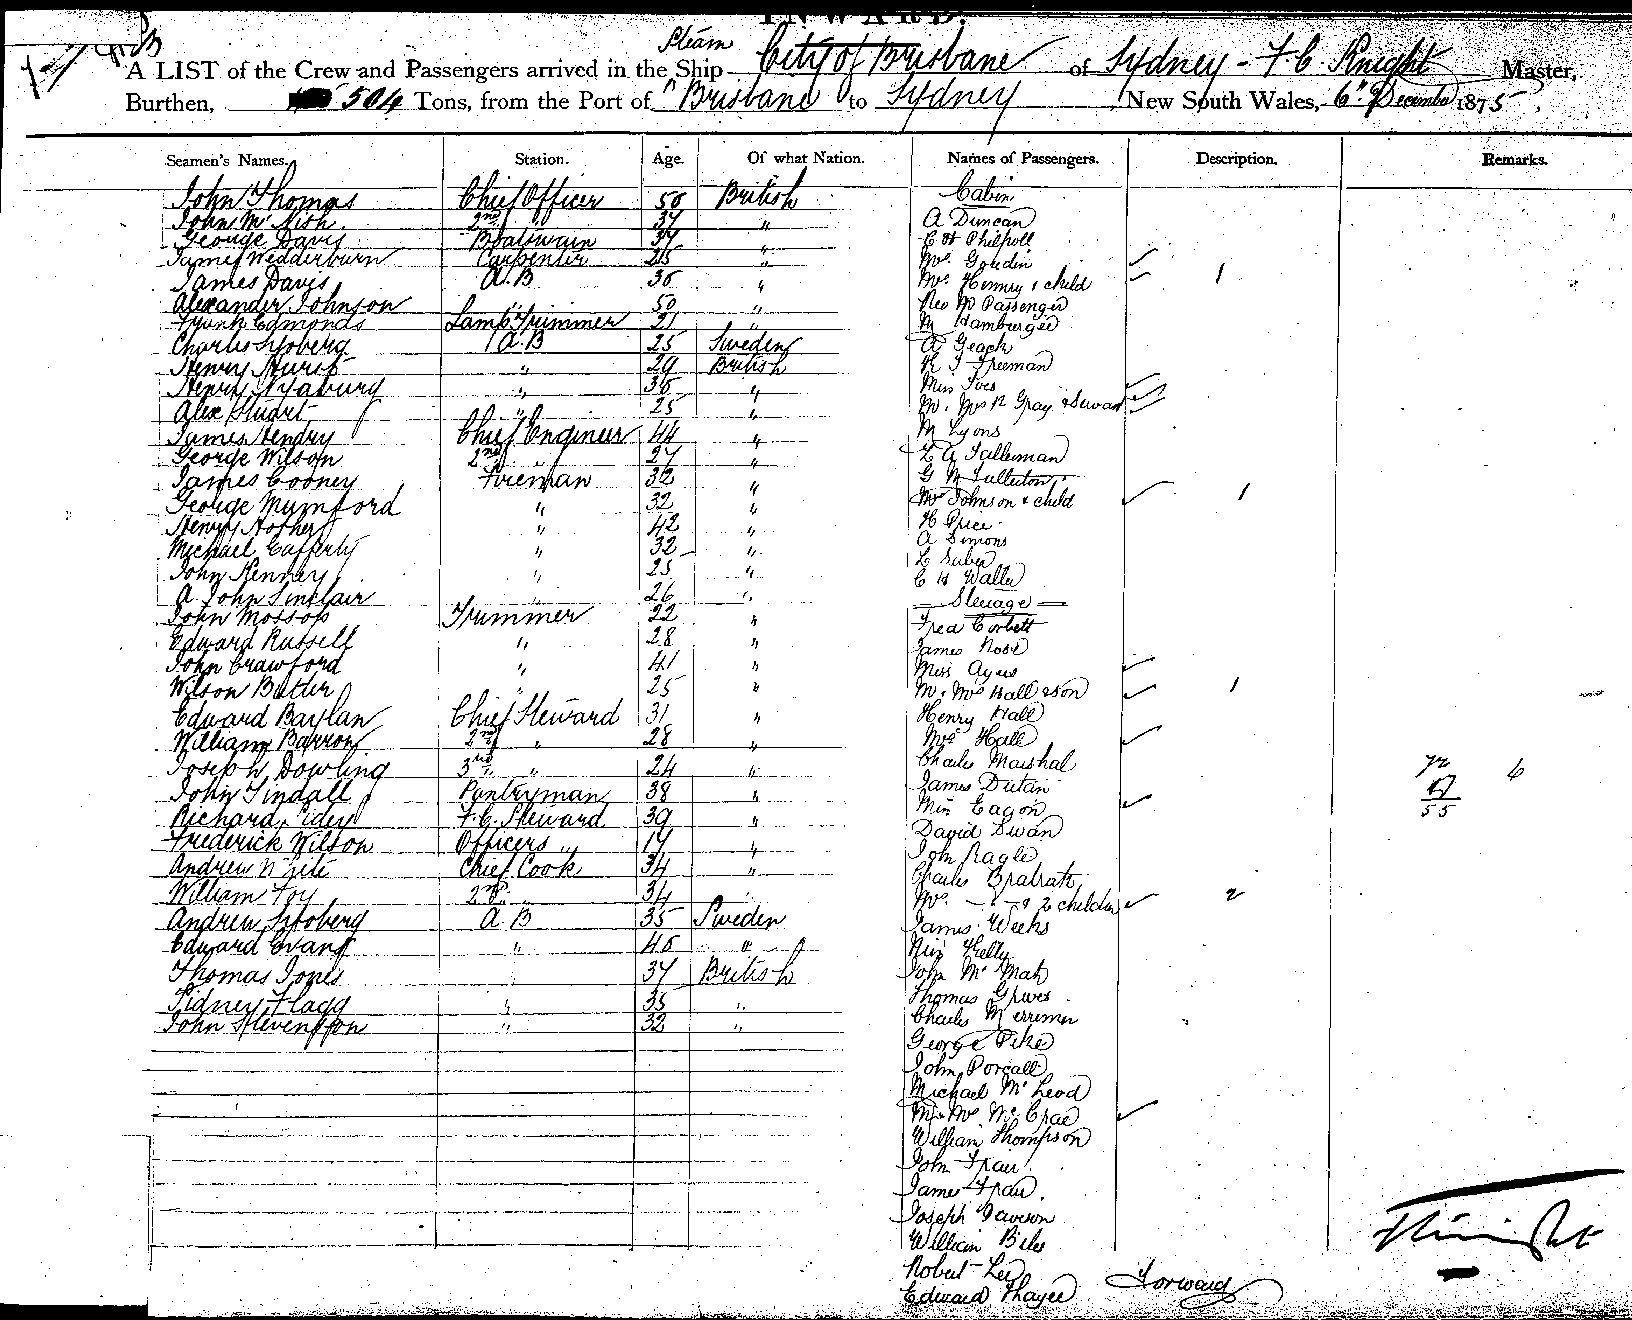 INWARD.
Steam
A LIST of the Crew and Passengers arrived in the Ship City of Brisbane of Sydney - F C Knight Master,
Burthen, 504 Tons, from the Port of Brisbane to Sydney New South Wales, 6th December 1875
Seamen's Names. Station. Age. Of what Nation. Names of Passengers. Description. Remarks.
John Thomas Chief Officer 50 British Cabin
John McNish 2nd " 37 " A Duncan
George Davis Boatswain 37 " C H Philpott
James Wedderburn Carpenter 25 " Mrs Goudin
James Davis A.B " Mrs Henney & child 1
Alexander Johnson " 50 " Rev M Passenger
Frank Edmonds Lamp Trimmer 21 " M Hamburger
Charles Sjoberg A.B 25 Sweden A Geach
Henry Hurst " 29 British H J Freeman
Henry " " Miss Ives
Alex Stuart " 25 " Mr Mrs R Gray & Servant
James Hendry Chief Engineer 44 " M Lyons
George Wilson 2nd " 27 " L A Talleman
James Cooney Fireman 32 " G M Tullerton
George Mumford " 32 " Mrs Johnson & child 1
Henry " 42 " H Price
Michael Cafferty " 32 " A Simons
John Kenney " 25 " L
A John Sinclair " 26 " C H Waller
John Mossop Trimmer 22 " Steerage
Edward Russell " 28 " Fred Corbett
John Crawford " 41 " James Rose
Wilson Butler " 25 " Miss Ayers
Edward Baylan Chief Steward 31 " Mr Mrs Hall & Son 1
William Barron 2nd " 28 " Henry Hall
Joseph Dowling 3rd " 24 " Mrs Hall
John Tindall Pantryman 38 " Charles Marshal 72 6
Richard F.C. Steward 39 " James 17
Frederick Wilson Officers " 17 " Miss Eagon 55
Andrew White Chief Cook 34 " David Swan
William Foy 2nd " 34 " John Nagle
Andrew Sjoberg A B 35 Sweden Charles
Edward Evans " " Mrs - " - & 2 children 2
Thomas Jones " 37 British James Weeks
Sidney Flagg " 35 " Miss Kelly
John Stevenson " 32 " John McMah
Thomas
Charles Merrimen
George Pike
John Porcall
Michael McLeod
Mr Mrs McCrae
William Thompson
John
James
Joseph Dawson
William
Robert Lee
Edward Thayer Forward